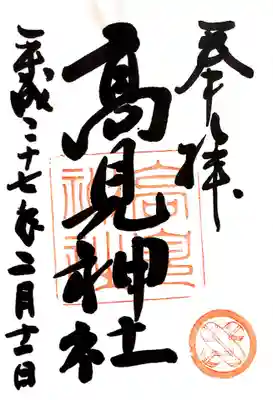 奉拝
髙見神社
平成二十七年二月十一日